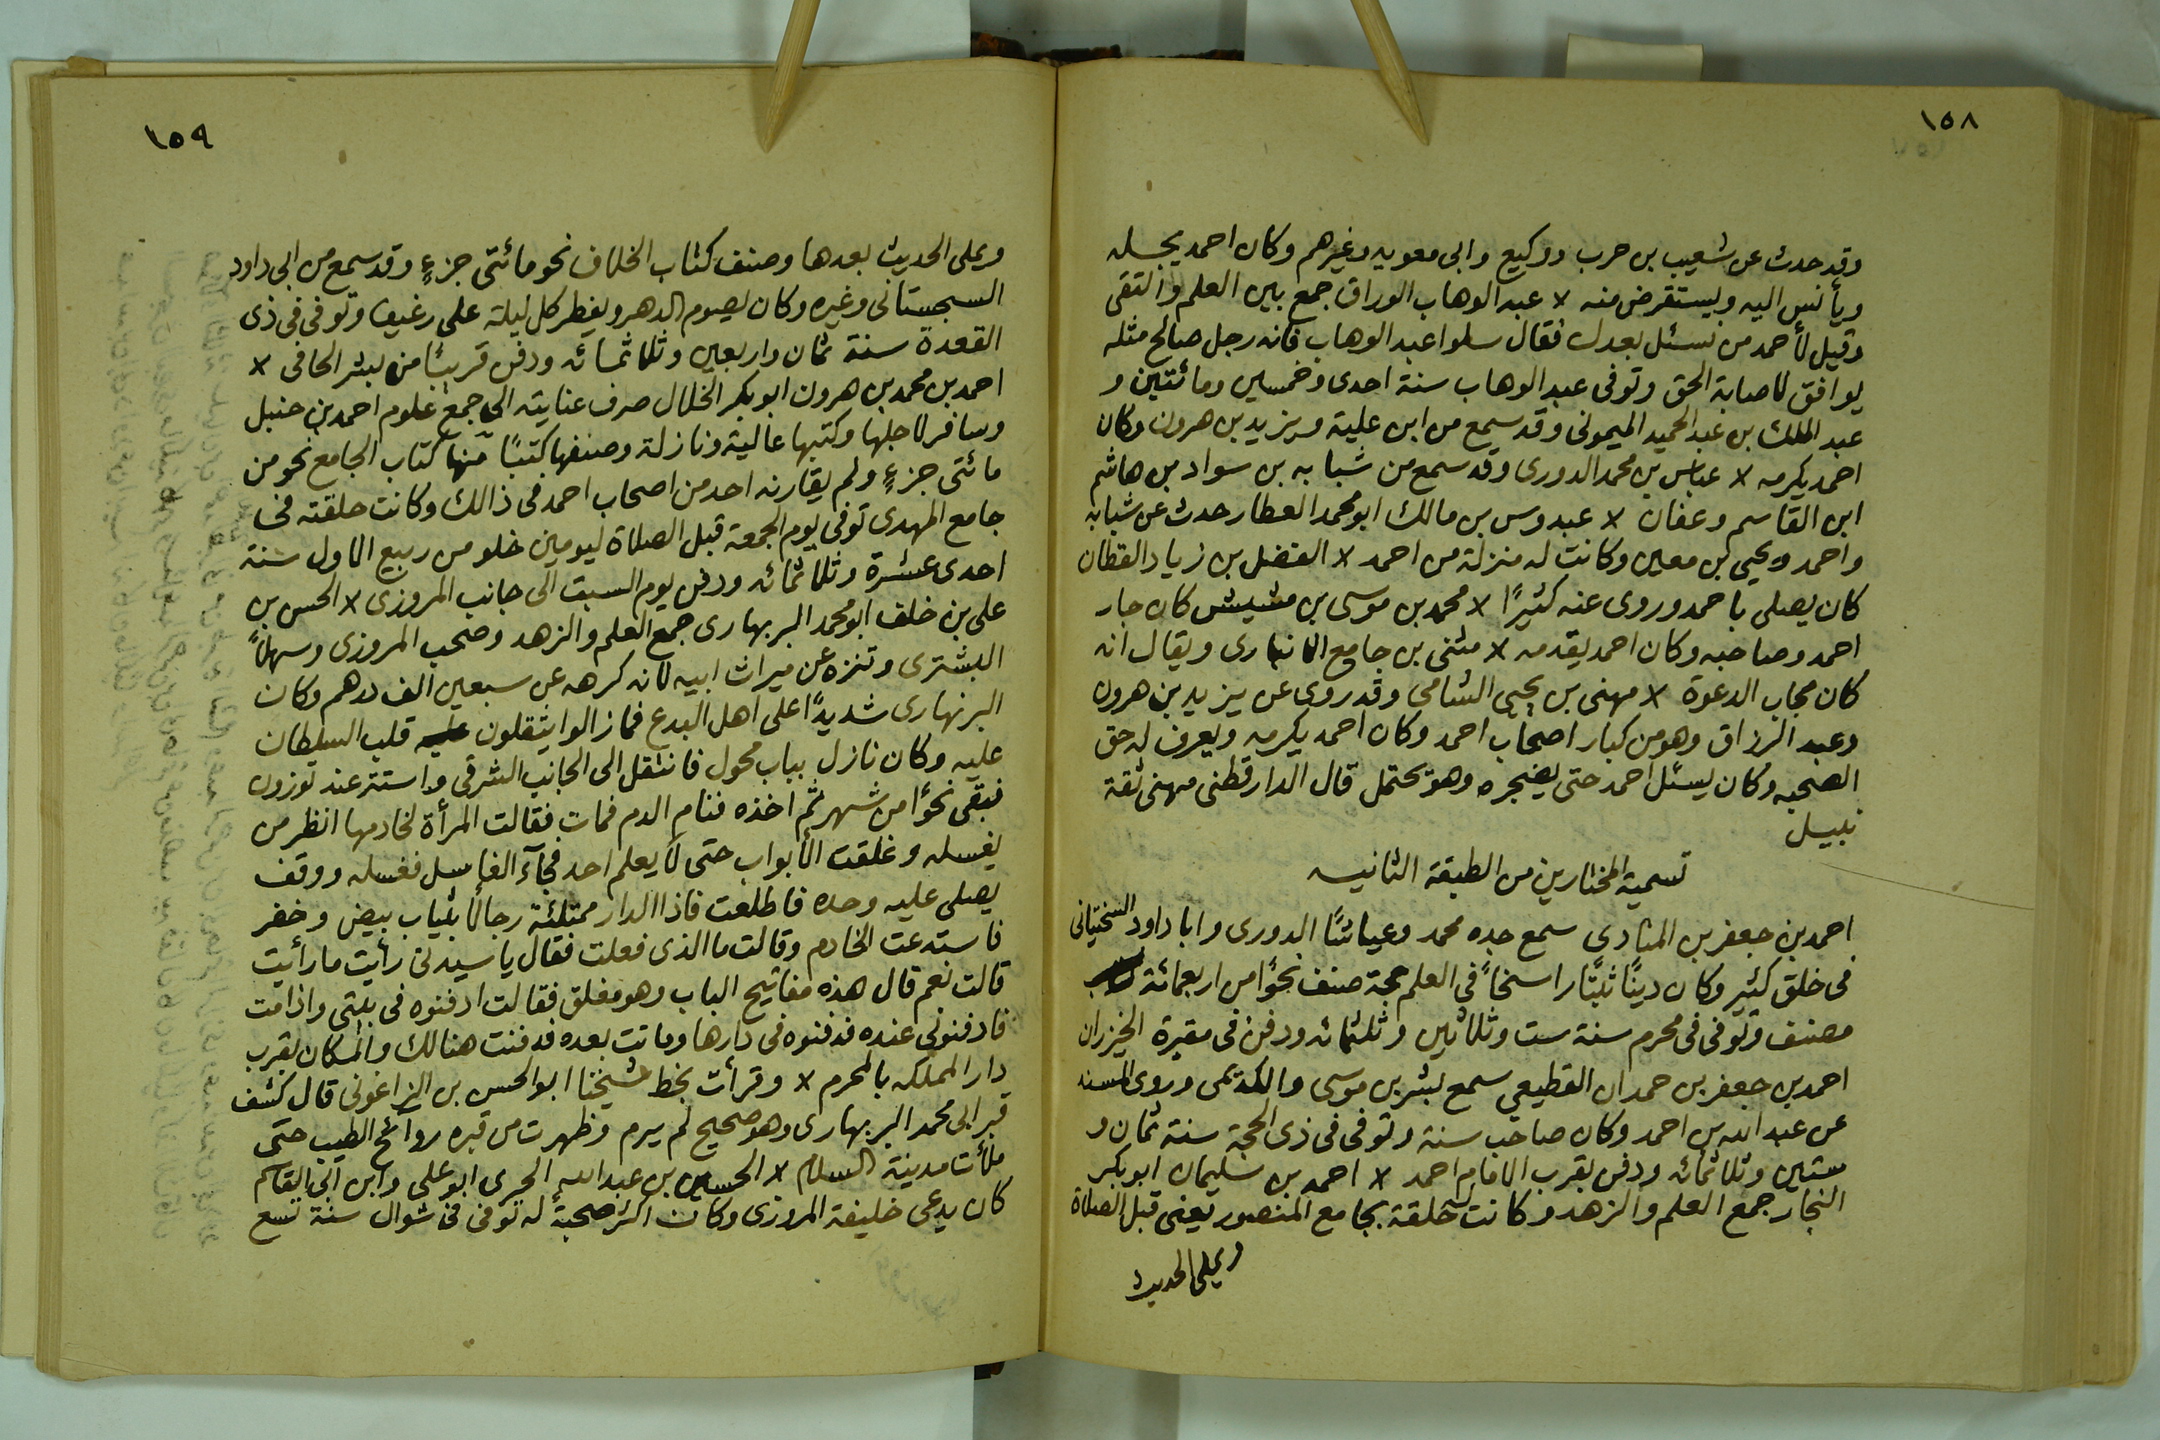 ١٥٨
وقد حدث عن شعيب بن حرب ووكيع وابى معويه وغيرهم وكان احمد يجله
ويأنس اليه ويستقرض منه × عبد الوهاب الوراق جمع بين العلم والتقى
وقيل لأحمد من نسئل بعدك فقال سلوا عبد الوهاب فانه رجل صالح مثله
يوافق لاصابة الحق وتوفى عبد الوهاب سنة احدى وخمسين ومائتين و
عبد الملك بن عبد الحميد الميمونى وقد سمع من ابن علية ويزيد بن هرون وكان
احمد يكرمه × عباس بن محمد الدورى وقد سمع من شبابه بن سواد بن هاشم
ابن القاسم وعفان × عبدوس بن مالك ابو محمد العطار حدث عن شبابه
واحمد ويحيى بن معين وكانت له منزلة من احمد × الفضل بن زياد القطان
كان يصلى باحمد وروى عنه كثيرًا × محمد بن موسى بن مشيش كان جار
احمد وصاحبه وكان احمد يقدمه × مثنى بن جامع الانبارى ويقال انه
كان مجاب الدعوة × مهنى بن يحيى الشامي وقد روى عن يزيد بن هرون
وعبد الرزاق وهو من كبار اصحاب احمد وكان احمد يكرمه ويعرف له حق
الصحبه وكان يسئل احمد حتى يضجره وهو يحتمل قال الدارقطنى مهنى ثقة
نبيل
تسمية المختارين من الطبقة الثانيه
احمد بن جعفر بن المنادى سمع جده محمد وعباسًا الدورى وابا داود السختيانى
فى خلق كثير وكان دينًا ثبتًا راسخًا فى العلم حجة صنف نحوًا من اربعمائة
مصنف وتوفى فى محرم سنة ست وثلاثين وثلثمائه ودفن فى مقبرة الخيزران
احمد بن جعفر بن حمدان القطيعي سمع بشر بن موسى والكديمى وروى المسند
عن عبد الله بن احمد وكان صاحب سنة وتوفى فى ذى الحجة سنة ثمان و
ستين وثلاثمائه ودفن بقرب الامام احمد × احمد بن سليمان ابو بكر
النجار جمع العلم والزهد وكانت له حلقة بجامع المنصور يفتى قبل الصلاة
ويملى الحديث
١٥٩
ويملى الحديث بعدها وصنف كتاب الخلاف نحو مائتى جزءٍ وقد سمع من ابى داود
السجستانى وغيره وكان يصوم الدهر ويفطر كل ليلة على رغيف وتوفى فى ذى
القعدة سنة ثمان واربعين وثلاثمائه ودفن قريبًا من بشر الحافى ×
احمد بن محمد بن هرون ابو بكر الخلال صرف عنايته الى جمع علوم احمد بن حنبل
وسافر لاجلها وكتبها عالية ونازلة وصنفها كتبًا منها كتاب الجامع نحو من
مائتى جزءٍ ولم يقارنه احد من اصحاب احمد فى ذالك وكانت حلقته فى
جامع المهدى توفى يوم الجمعة قبل الصلاة ليومين خلو من ربيع الاول سنة
احدى عشرة وثلاثمائه ودفن يوم السبت الى جانب المروزى × الحسن بن
على بن خلف ابو محمد البربهارى جمع العلم والزهد وصحب المروزى وسهلاً
البشترى وتنزه عن ميراث ابيه لانه كرهه عن سبعين الف درهم وكان
البرنهارى شديدًا على اهل البدع فمازالوا يثقلون عليه قلب السلطان
عليه وكان نازل بباب محول فانتقل الى الجانب الشرقى واستتر عند توزون
فبقى نحوًا من شهر ثم اخذه فنام الدم فمات فقالت المرأة لخادمها انظر من
يغسله وغلقت الأبواب حتى لا يعلم احد فجآء الغاسل فغسله ووقف
يصلى عليه وحده فاطلعت فاذا الدار ممتلئة رجالًا بثياب بيض وخضر
فاستدعت الخادم وقالت ما الذى فعلت فقال ياسيدتى رأيت ما رأيت
قالت نعم قال هذه مفاتيح الباب وهو مغلق فقالت ادفنوه فى بيتى واذامت
فادفنونى عنده فدفنوه فى دارها وماتت بعده فدفنت هنالك والمكان بقرب
دار المملكه بالمحرم × وقرأت بخط شيخنا ابو الحسن بن الزاغونى قال كشف
قبر ابى محمد البربهارى وهو صحيح لم يرم وظهرت من قبره روائح الطيب حتى
ملأت مدينة السلام × الحسين بن عبد الله الجرى ابو على وابن ابى القاسم
كان يدعى خليفة المروزى وكان اكثر صحبة له توفى فى شوال سنة تسع